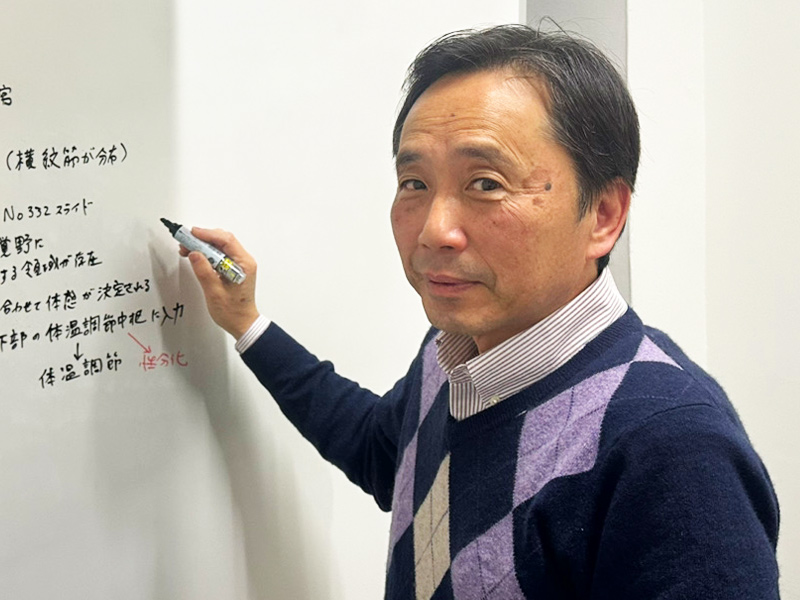 宮
(横紋筋が分布)
No 332 スライド
覚野に
する領域が存在
合わせて体態が決定される
下部の体温調節中枢に入力
↓
体温調節
性分化